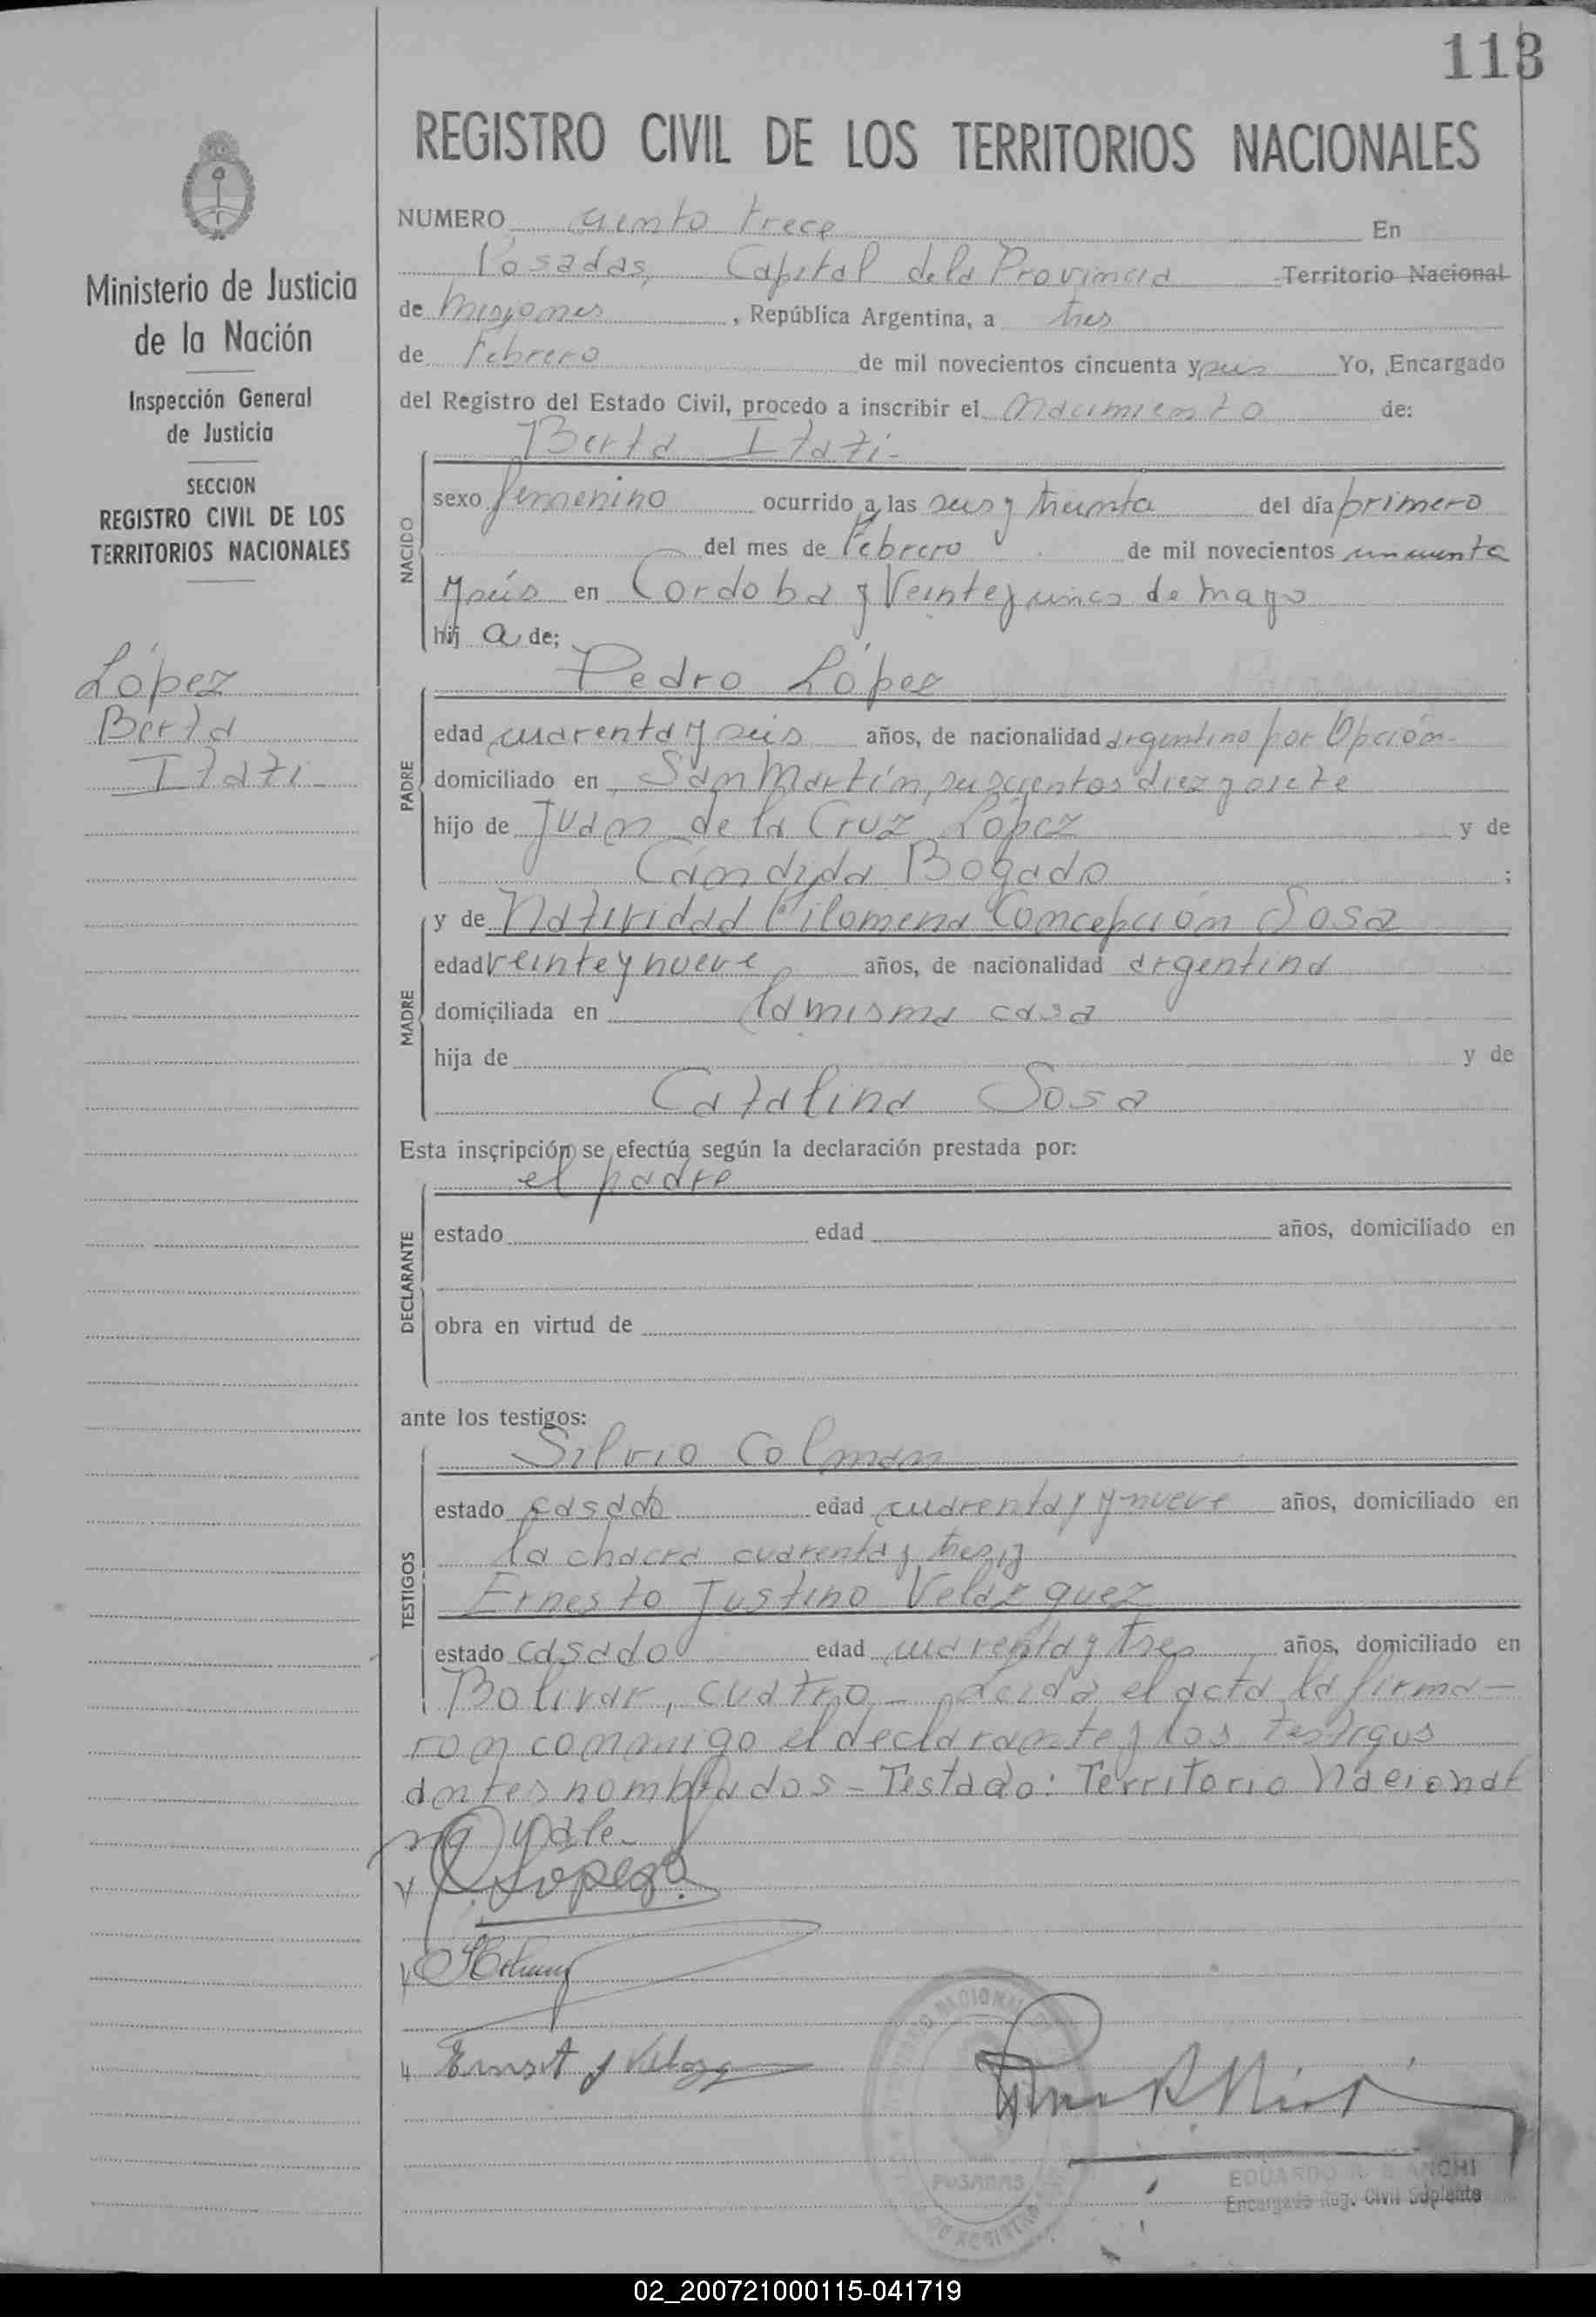 113
REGISTRO CIVIL DE LOS TERRITORIOS NACIONALES
Ministerio de Justicia
de la Nación
Inspección General
de Justicia
SECCION
REGISTRO CIVIL DE LOS
TERRITORIOS NACIONALES
López
Berta
Itatí
NUMERO ciento trece En
Posadas, Capital de la Provincia Territorio Nacional
de Misiones, República Argentina, a tres
de Febrero de mil novecientos cincuenta y seis Yo, Encargado
del Registro del Estado Civil, procedo a inscribir el nacimiento de:
Berta Itatí-
NACIDO
sexo femenino ocurrido a las seis y treinta del día primero
del mes de Febrero de mil novecientos cincuenta
y seis en Cordoba y Veinte y cinco de mayo
hij a de;
Pedro López
PADRE
edad cuarenta y seis años, de nacionalidad argentino por Opción-
domiciliado en San Martín, seiscientos diez y siete
hijo de Juan de la Cruz López y de
Cándida Bogado ;
MADRE
y de Natividad Filomena Concepción Sosa
edad veinte y nueve años, de nacionalidad argentina
domiciliada en la misma casa
hija de y de
Catalina Sosa
Esta inscripción se efectúa según la declaración prestada por:
el padre
DECLARANTE
estado edad años, domiciliado en
obra en virtud de
ante los testigos:
Silvio Colman
TESTIGOS
estado casado edad cuarenta y nueve años, domiciliado en
la chacra cuarenta y tres, y
Ernesto Justino Velazquez
estado casado edad cuarenta y tres años, domiciliado en
Bolivar, cuatro - Leida el acta la firma-
ron conmigo el declarante y los testigos
antes nombrados - Testado: Territorio Nacional
no vale-
López
POSADAS
EDUARDO R. BIANCHI
Encargado Reg. Civil Suplente
02_200721000115-041719